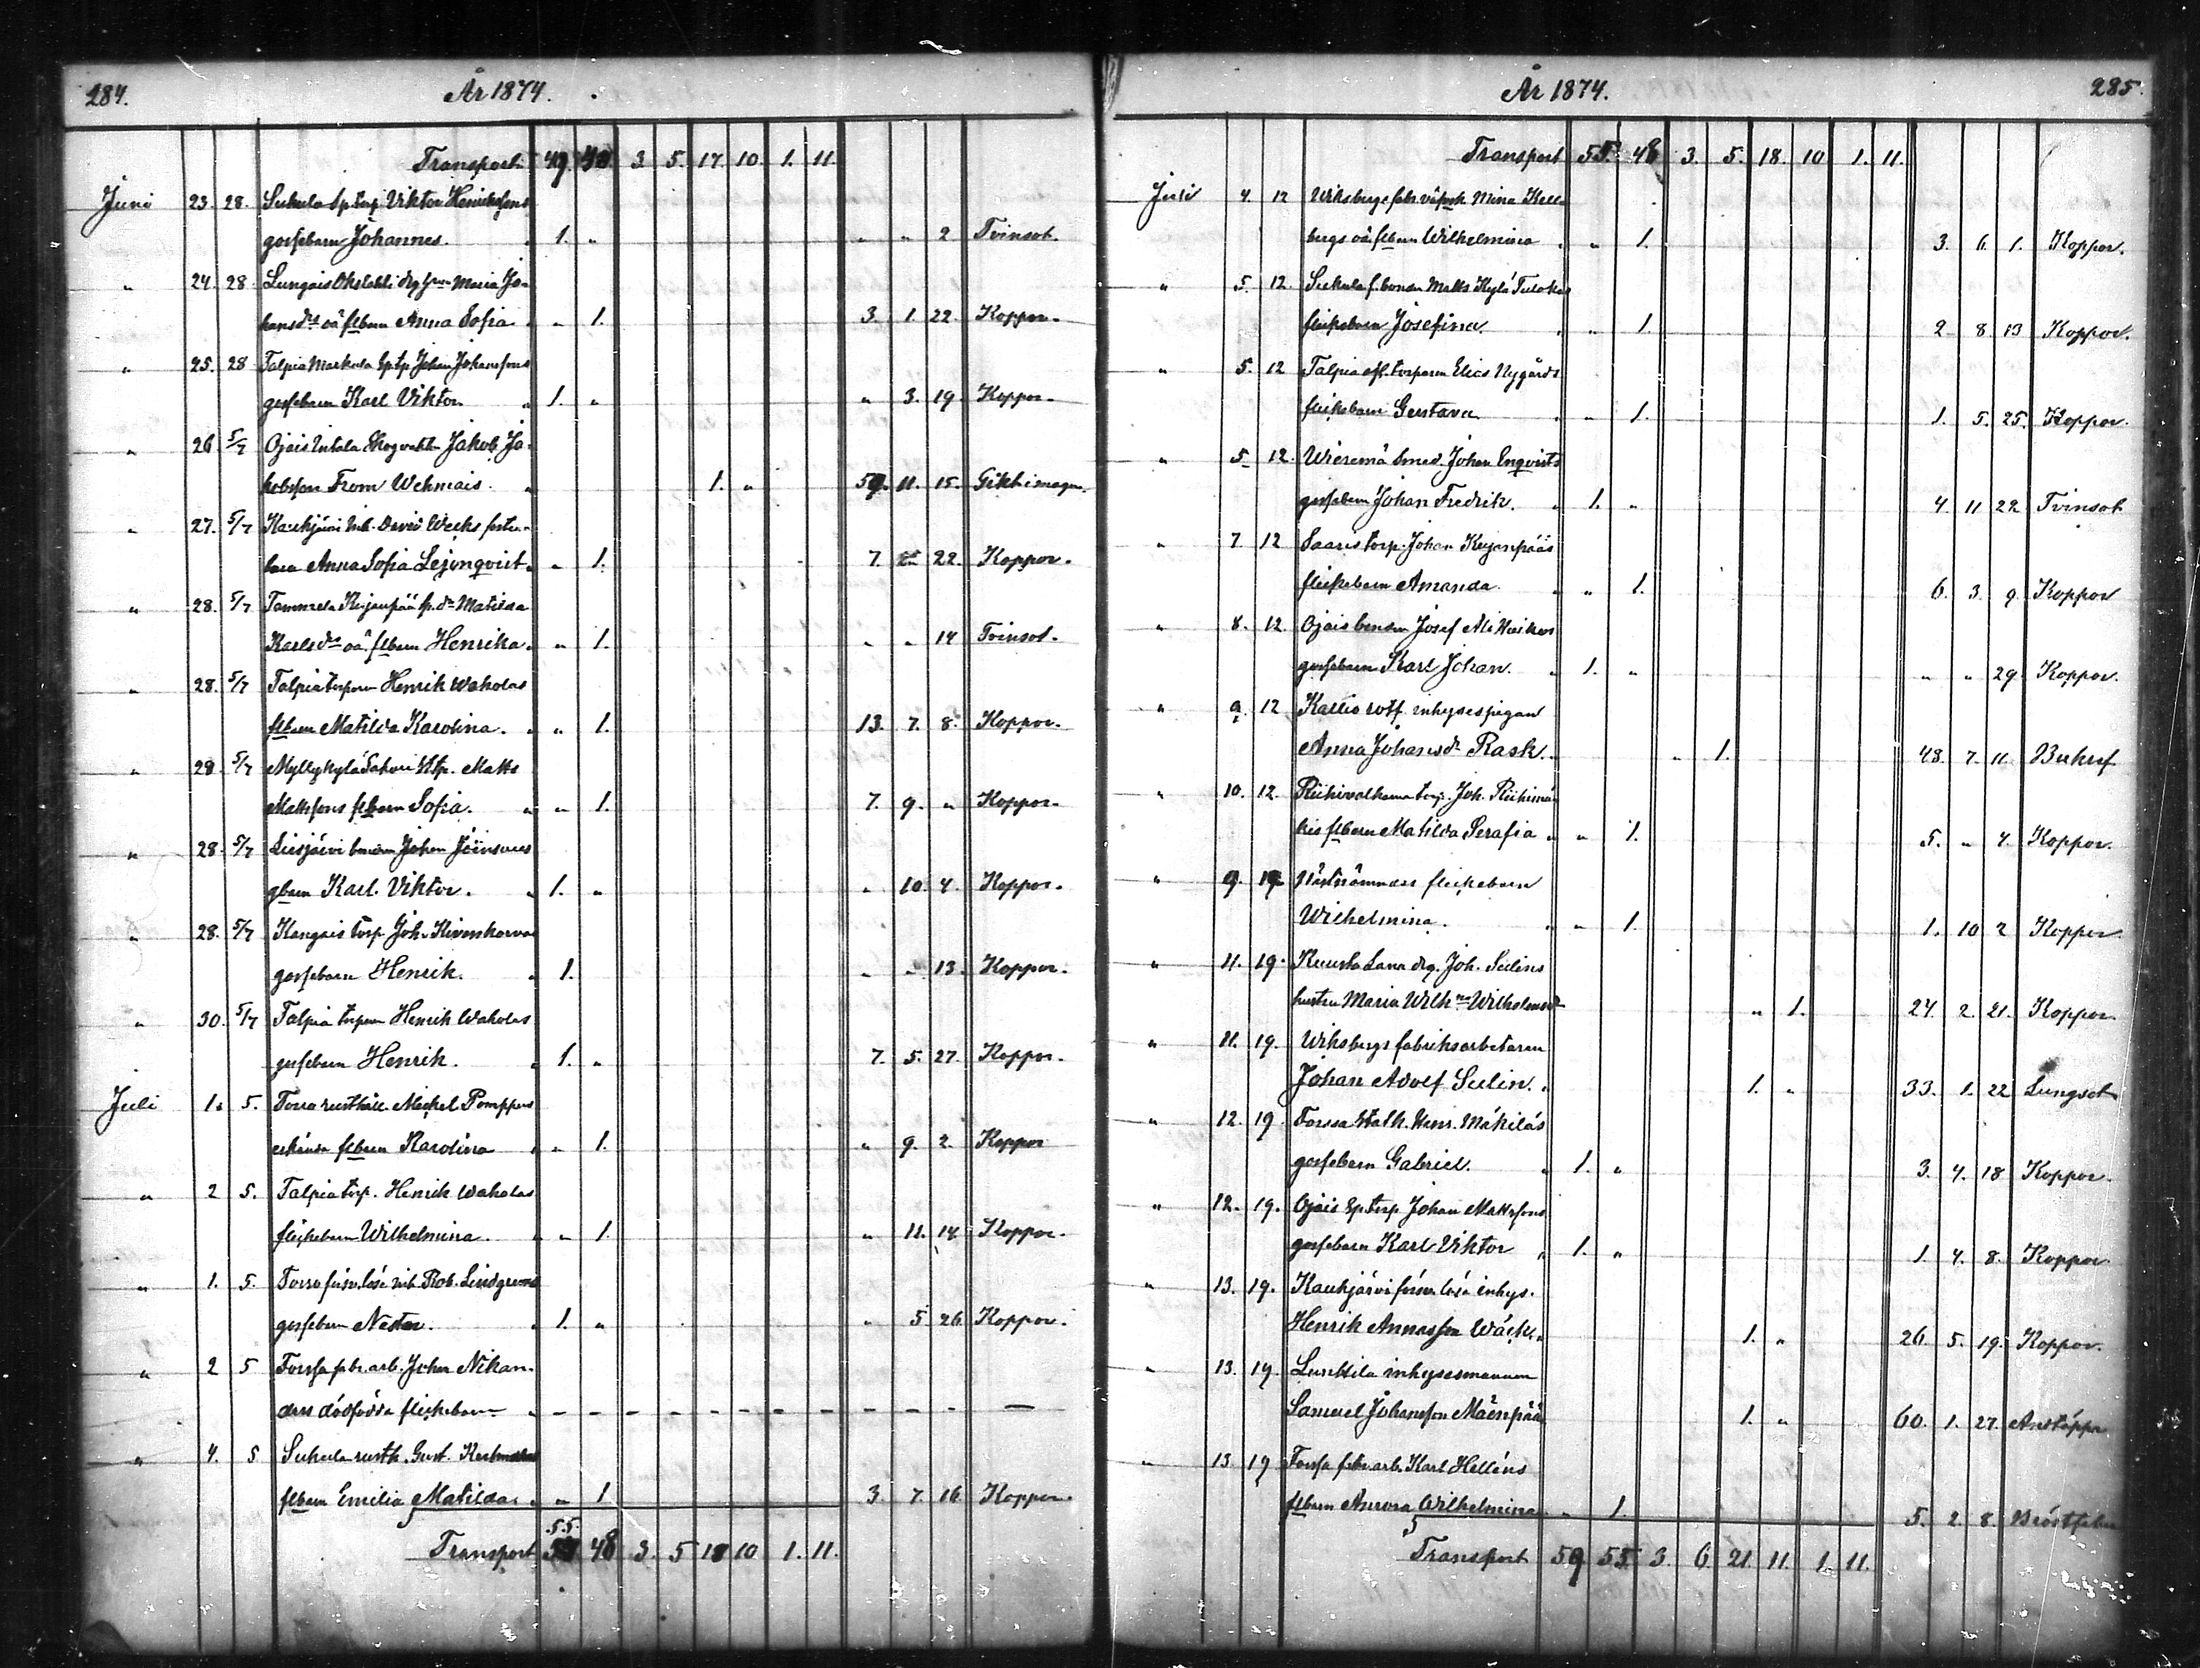 284. År 1874.
Transport 49. 40. 3. 5. 17. 10. 1. 11.
Juni 23. 28. Sukula Sp. torp Viktor Henrikssons
gossebarn Johannes. 1. " " " 2 Tvinsot.
" 24. 28. Lungais Maria Jo-
hansdr oä flbarn Anna Sofia " 1. 3. 1. 22. Koppor.
" 25. 28 Talpia Markula Sp.tp Johan Johanssons
gossebarn Karl Viktor " 1. " " 3. 19. Koppor.
" 26. 5/7 Ojais Skogvakt. Jakob Ja-
kobsson From Wehmais. " 1. " 59. 11. 15. Giktimagn.
" 27. 5/7 Kaukjärvi inh. David Wecks foster-
barn Anna Sofia Lejonqvist " " 1. 7. 22. Koppor.
" 28. 5/7 Tammela Kujanpää Matilda
Karlsdr oä. flbarn Henrika " " 1. " " 14 Tvinsot.
" 28. 5/7 Talpia torparen Henrik Waholas
flbarn Matilda Karolina. " " 1. 13. 7. 8. Koppor.
" 28. 5/7 Myllykylä Matts
Mattssons flbarn Sofia. " " 1. 7. 9. " Koppor.
" 28. 5/7 Liesjärvi bonden Johan
gbarn Karl Viktor. " 1. " " 10. 4. Koppor.
" 28. 5/7 Kangais torp. Joh.
gossebarn Henrik. " 1. " " 13. Koppor.
" 30. 5/7 Talpia torparen Henrik Waholas
gossebarn Henrik. " 1. " 7. 5. 27. Koppor.
Juli 1. 5. Torro rusthåll. Mickel Pomppus
flbarn Karolina " " 1. " 9. 2. Koppor
" 2 5. Talpia torp. Henrik Waholas
flickebarn Wilhelmina. " " 1. " 11. 14. Koppor.
" 1. 5. Torro inh. Rob. Lindgrens
gossebarn Nestor. " 1. " " 5 26 Koppor.
" 2 5 Forssa fabr.arb. Johan Nikan-
ders dödfödda flickebarn " - - - - - - - - - - - —
" 4. 5 Sukula rusth. Gust.
flbarn Emilia Matilda " " 1 3. 7. 16 Koppor.
55.
Transport 48 3. 5 18 10 1. 11.
År 1874. 285.
Transport 55. 48 3. 5. 18. 10 1. 11.
Juli 4. 12 Wiksbergs fabr. Mina Kell-
bergs oä flbarn Wilhelmina " " 1. 3. 6 1. Koppor.
" 5. 12. Sukula f. bonden Matts Kylä Tulokas
flickebarn Josefina. " " 1. 2 8 13 Koppor.
" 5. 12 Talpia afl. torparen Elias Nygårds
flickebarn Gustava " " 1. 1. 5. 25. Koppor.
" 5 12. Wieremä Smed. Johan Enqvists
gossebarn Johan Fredrik. " 1. " 4 11 22 Tvinsot
" 7. 12 Saaris torp. Johan Kujanpääs
flickebarn Amanda. " " 1. 6. 3. 9. Koppor
" 8. 12. Ojais bonden Josef
gossebarn Karl Johan. " 1. " " " 29. Koppor.
" 9. 12 Kallio inhysespigan
Anna Johansdr Rask. " " 1. 48. 7. 11. Bukref
" 10. 12. Riihivalkama torp. Joh. Riihimä-
kis flbarn Matilda Serafia " " 1. 5. " 4. Koppor.
" 9. 19 flickebarn
Wilhelmina. " " 1. 1. 10 2 Koppor.
" 11. 19. Kuusto Lana drg. Joh. Sulins
hustru Maria Wilhna Wilhelmsdr " 1. 24. 2 21. Koppor
" 11. 19. Wiksbergs fabriksarbetaren
Johan Adolf Sulin. " 1. " 33. 1. 22 Lungsot
" 12. 19. Forssa Henr. Mäkiläs
gossebarn Gabriel. " 1. " 3. 4. 18 Koppor.
" 12. 19. Ojais Sp.torp. Johan Mattssons
gossebarn Karl Viktor " 1. " 1. 4. 8. Koppor
" 13. 19. Kaukjärvi inhys.
Henrik Annasson Wäck. " 1. " 26. 5. 19. Koppor.
" 13. 19. Lunttila inhysesmannen
Samuel Johansson Mäenpää 1. " 60. 1. 27.
" 13 19 Forssa fabr.arb. Karl Helléns
flbarn Aurora Wilhelmina " " 1. 5. 2. 8. Bröstfeber
Transport 59 55. 3. 6. 21. 11. 1. 11.